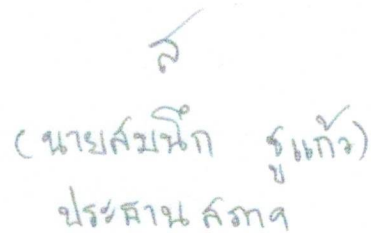 ส
(นายสมนึก ชูแก้ว)
ประธานสภาฯ